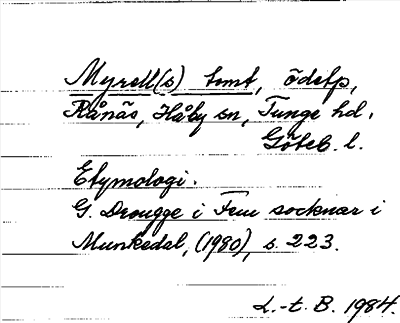 Myrell(s) tomt, ödefp,
Rånäs, Håby sn, Tunge hd.
Göteb. l.
Etymologi.
G. Drougge i Fem socknar i
Munkedal, (1980), s. 223.
L.-t. B. 1984.